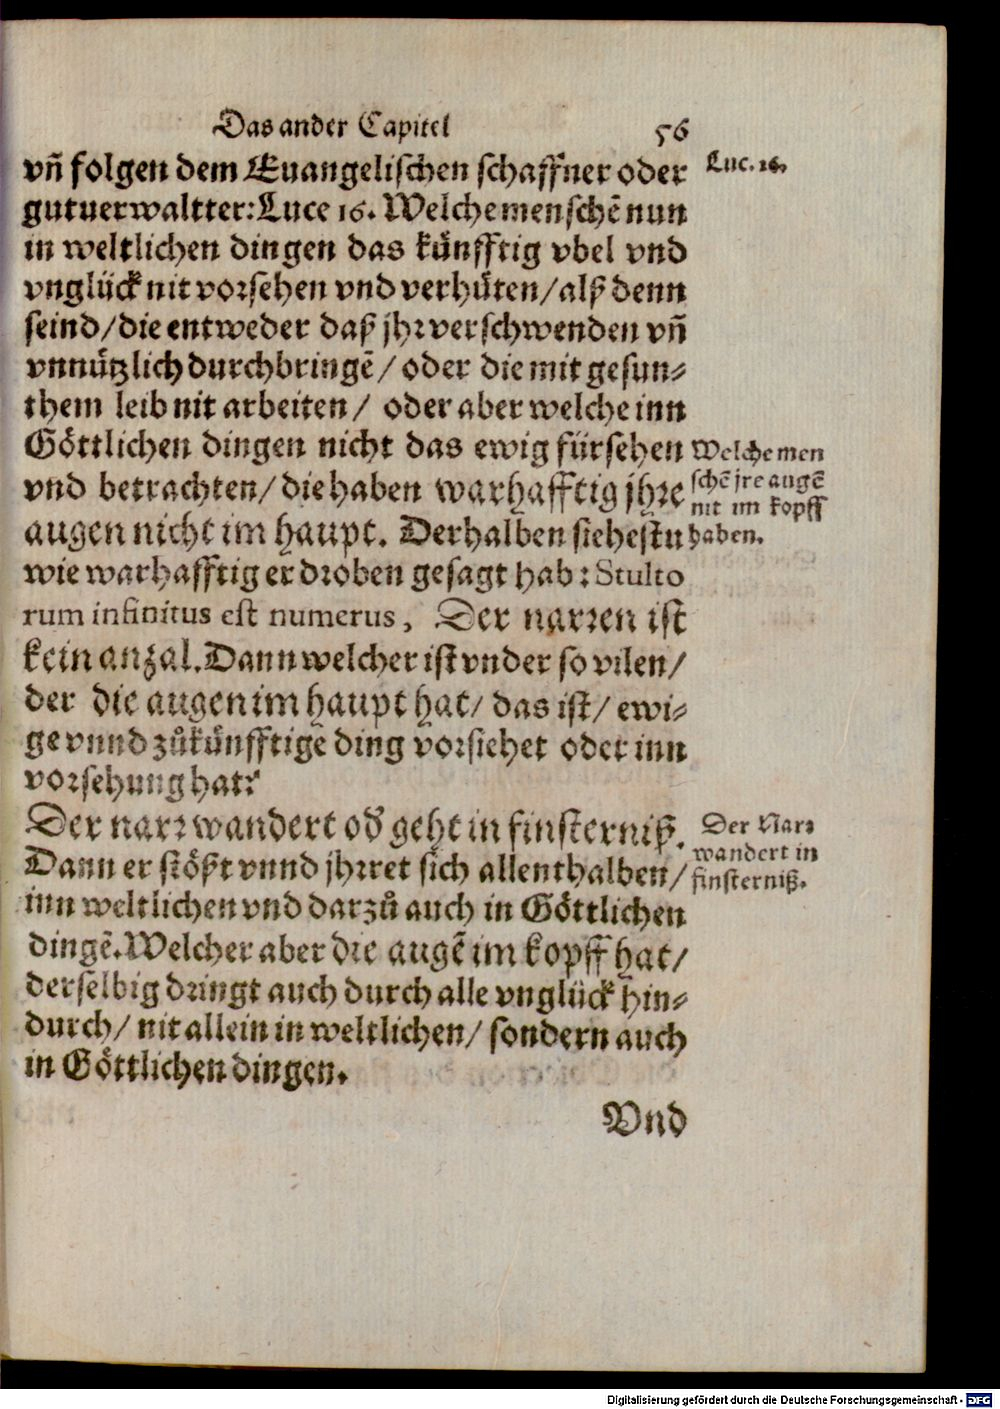 Das ander Capitel 56
vñ folgen dem Euangelischen schaffner oder
gutuerwaltter: Luce 16. Welche menschẽ nun
in weltlichen dingen das kuͤnfftig vbel vnd
vnglück nit vorsehen vnd verhuͤten / alß denn
seind / die entweder daß jhr verschwenden vñ
vnnuͤtzlich durchbringẽ / oder die mit gesun⸗
them leib nit arbeiten / oder aber welche inn
Goͤttlichen dingen nicht das ewig fürsehen
vnd betrachten / die haben warhafftig jhre
augen nicht im haupt. Derhalben siehestu
wie warhafftig er droben gesagt hab: Stulto
rum infinitus est numerus, Der narren ist
kein anzal. Dann welcher ist vnder so vilen /
der die augen im haupt hat / das ist / ewi⸗
ge vnnd zůkuͤnfftige ding vorsiehet oder inn
vorsehung hat?
Der narr wandert od' geht in finsterniß.
Dann er stoͤßt vnnd jhrret sich allenthalben /
inn weltlichen vnd darzů auch in Goͤttlichen
dingẽ. Welcher aber die augẽ im kopff hat /
derselbig dringt auch durch alle vnglück hin⸗
durch / nit allein in weltlichen / sondern auch
in Goͤttlichen dingen.
Vnd
Luc. 16.
Welche men
schẽ jre augẽ
nit im kopff
haben.
Der Narr
wandert in
finsterniß.
Digitalisierung gefördert durch die Deutsche Forschungsgemeinschaft - DFG